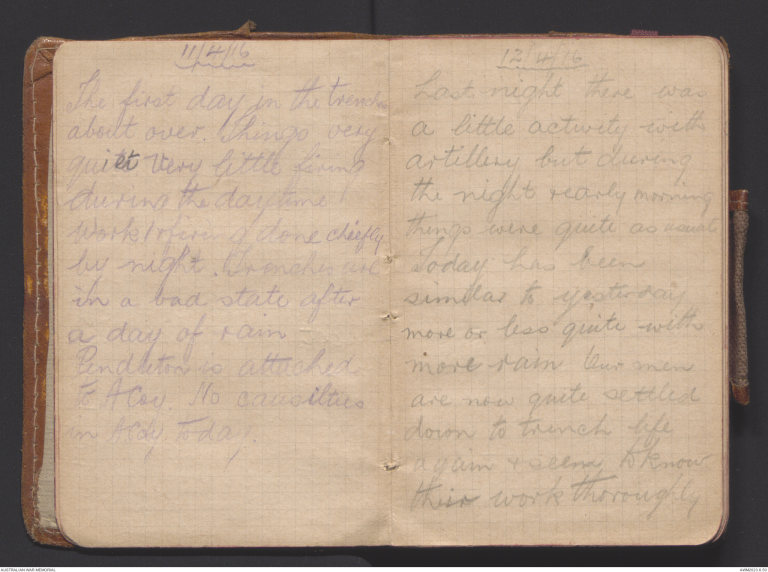 11/4/16
The first day in the trenches
about over. Things very
quiet very little firing
during the daytime
Work & firing done chiefly
by night. Trenches are
in a bad state after
a day of rain
Pendleton is attached
to A Coy. No causilties
in A Coy today.
12/4/16
Last night there was
a little activity with
artillery but during
the night & early morning
things were quite as usual
Today has been
similar to yesterday
more or less quite with
more rain Our men
are now quite settled
down to trench life
again & seem to know
their work thoroughly
AUSTRALIAN WAR MEMORIAL